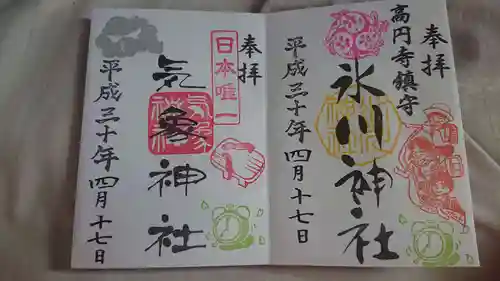 奉拝
高円寺鎮守
氷川神社
平成三十年四月十七日
奉拝
日本唯一
気象神社
平成三十年四月十七日